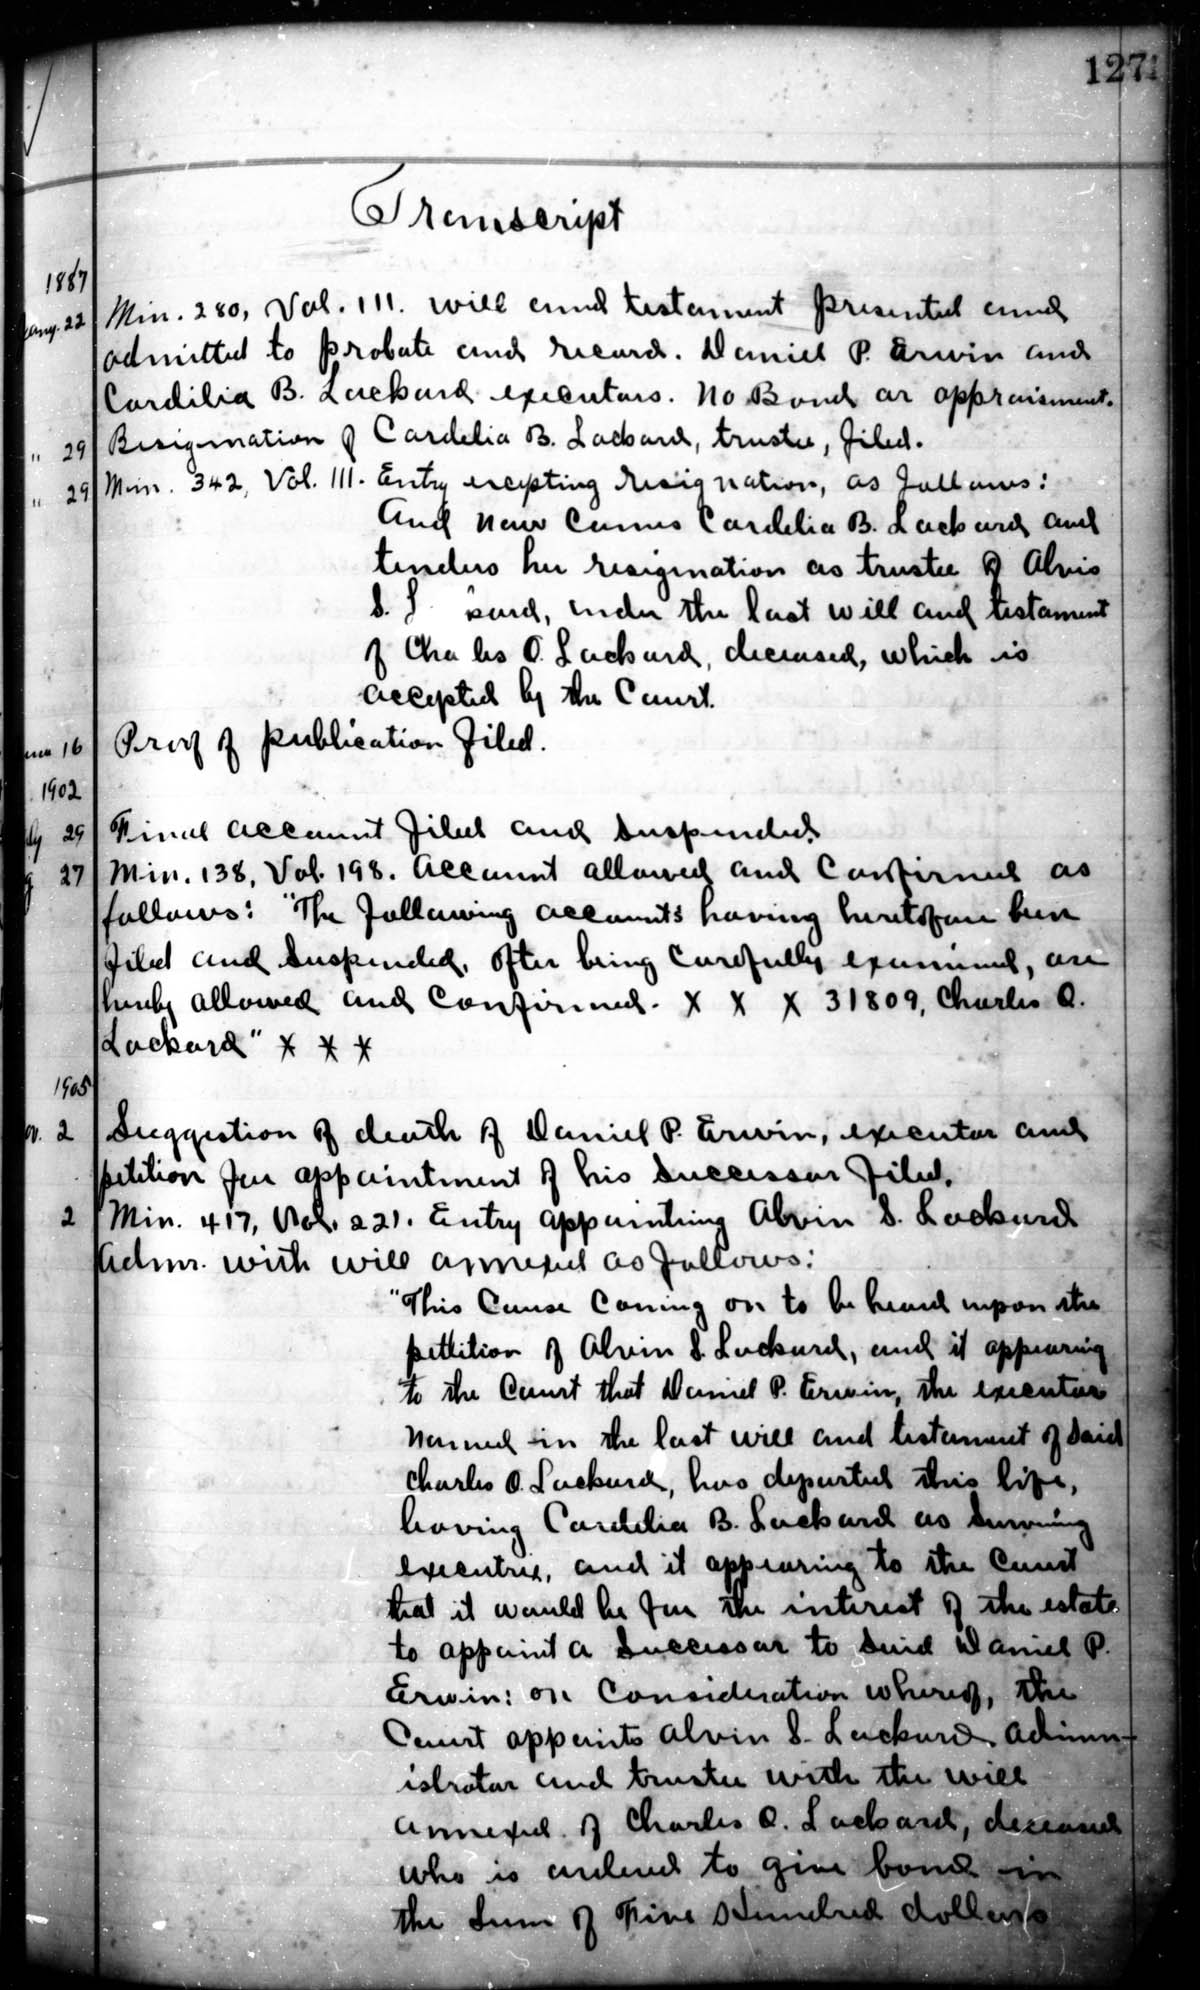 127
Transcript
1887
Jany. 22 Min. 280, Vol. 111. Will and testament presented and
admitted to probate and record. Daniel P. Erwin and
Cordilia B. Lockard executors. No Bond or appraisment.
" 29 Resignation of Cordelia B. Lockard, trustee, filed.
" 29 Min. 342, Vol. 111. Entry excepting resignation, as follows:
And now comes Cordelia B. Lockard and
tenders her resignation as trustee of Alvis
S. L kard, under the last will and testament
of Cha les O. Lockard, deceased, which is
accepted by the Court.
16 Proof of publication filed.
1902
ly 29 Final account filed and suspended.
g 27 Min. 138, Vol. 198. Account allowed and confirmed as
follows: "The following accounts having heretofore been
filed and suspended, after being carefully examined, are
hereby allowed and confirmed. x x x 31809, Charles O.
Lockard" x x x
1905
ov. 2 Suggestion of death of Daniel P. Erwin, executor and
petition for appointment of his successor filed.
2 Min. 417, Vol. 221. Entry appointing Alvin S. Lockard
Admr. with will annexed as follows:
"This cause coming on to be heard upon the
pettition of Alvin S. Lockard, and it appearing
to the Court that Daniel P. Erwin, the executor
named in the last will and testament of said
Charles O. Lockard, has departed this life,
leaving Cordelia B. Lockard as surviving
executrix, and it appearing to the Court
that it would be for the interest of the estate
to appoint a successor to said Daniel P.
Erwin: on consideration whereof, the
Court appoints Alvin S. Lockard admin-
istrator and trustee with the will
annexed of Charles O. Lockard, deceased
who is ordered to give bond in
the sum of Five Hundred dollars